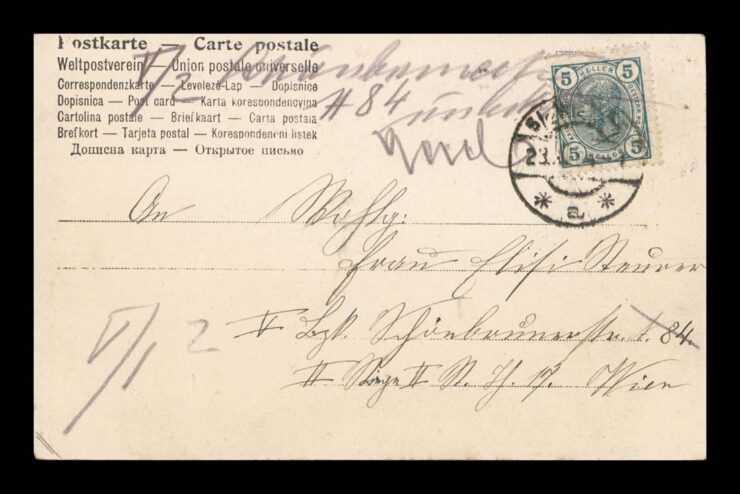 Postkarte — Carte postale
Weltpostverein — Union postale universelle
Correspondenzkarte — Levelezö-Lap — Dopisnice
Dopisnica — Post card — Karta korespondencyjna
Cartolina postale — Briefkaart — Carta postala
Brefkort — Tarjeta postal — Korespondenční listek
Дописна карта — Открытое письмо
V/2
# 84
5 HELLER 5
5 HELLER 5
An Wohlg:
Frau Elisi Steurer
V/1 2
V Bzk. Schönbrunnerstr. 84.
II Stiege II St. Th. 17. Wien